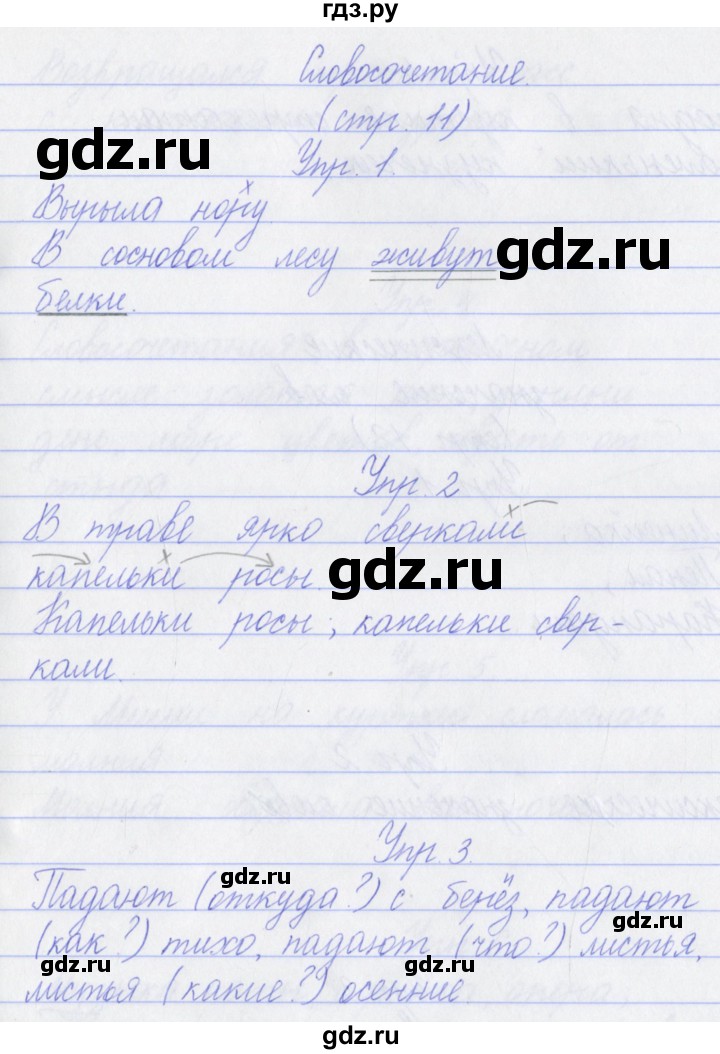 гдз.ру
Словосочетание.
(стр. 11)
gdz.ru
Упр. 1.
Вырыла нору.
В сосновом лесу живут gdz.ru
белки.
Упр. 2
В траве ярко сверкали
капельки росы. gdz.ru
Капельки росы, капельки свер-
кали.
Упр. 3.
gdz.ru
Падают (откуда?) с берёз, падают
gdz.ru
(как?) тихо, падают (что?) листья,
gdz.ru gdz.ru
листья (какие?) осенние
gdz.ru